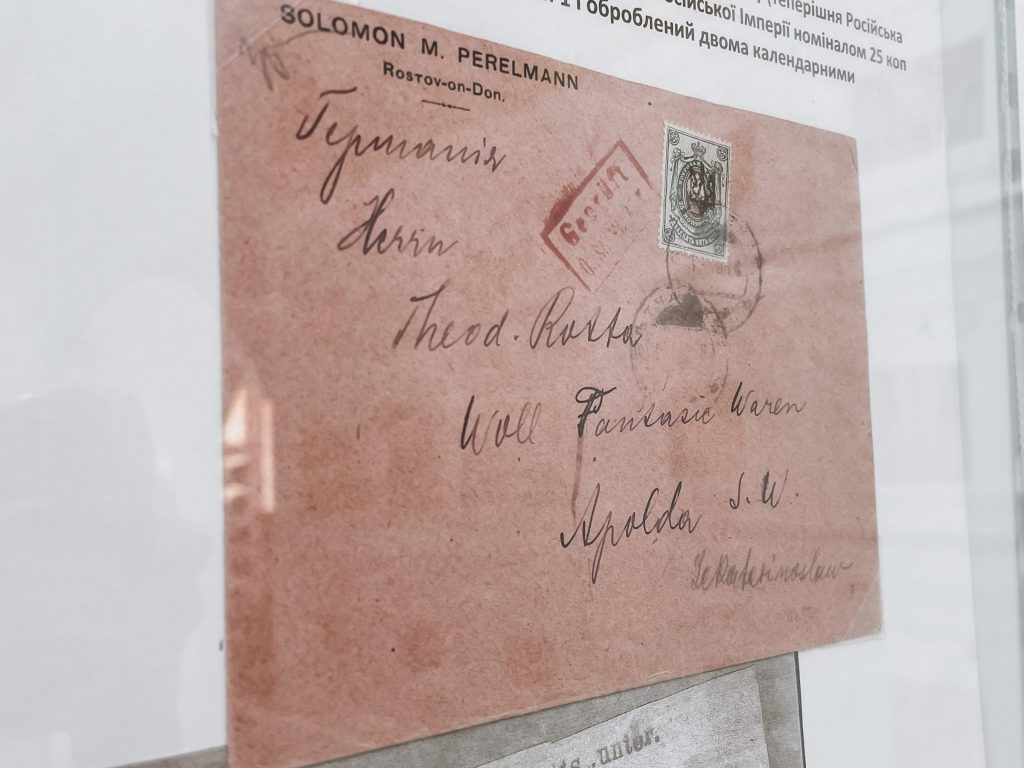 (теперішня Російська
Російської Імперії номіналом 25 коп
1 і оброблений двома календарними
SOLOMON M. PERELMANN
Rostov-on-Don.
Германія
Herrn
Theod. Rotta
Woll Fantasie Waren
Apolda S. W.
Jekaterinoslaw
Geprüft
unter.